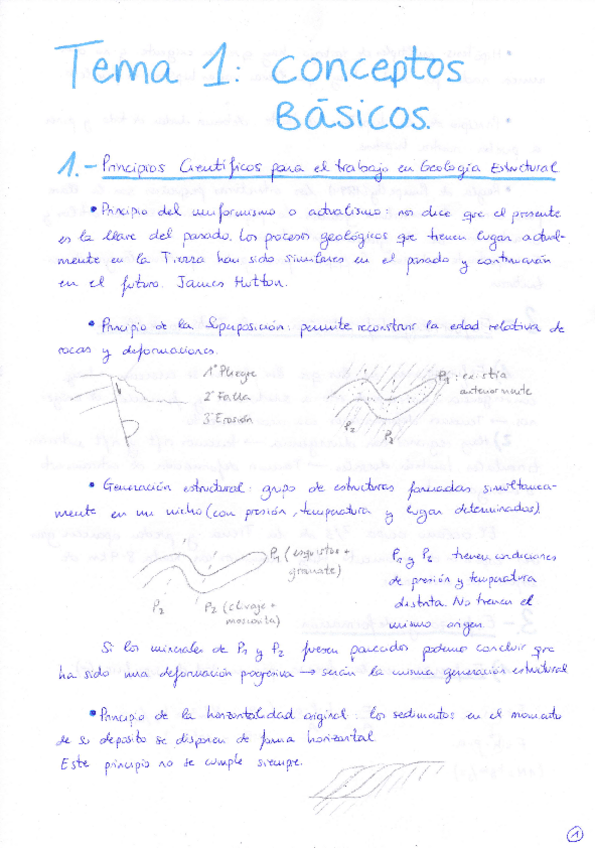 Tema 1: Conceptos
Básicos.
1.- Principios Científicos para el trabajo en Geología Estructural
• Principio del uniformismo o actualismo: nos dice que el presente
es la llave del pasado. Los procesos geológicos que tienen lugar actual-
mente en la Tierra han sido similares en el pasado y continuarán
en el futuro. James Hutton.
• Principio de la Superposición: permite reconstruir la edad relativa de
rocas y deformaciones.
1º Pliegue
2º Falla
3º Erosión
P1: existía
anteriormente
P2
P2
• Generación estructural: grupo de estructuras formadas simultanea-
mente en un nicho (con presión, temperatura y lugar determinados)
P1 (esquistos +
granate)
P2
P2 (clivaje +
moscovita)
P1 y P2 tienen condiciones
de presión y temperatura
distinta. No tienen el
mismo origen.
Si los minerales de P1 y P2 fuesen parecidos podemos concluir que
ha sido una deformación progresiva → serían la misma generación estructural
• Principio de la horizontalidad original: los sedimentos en el momento
de su deposito se disponen de forma horizontal
Este principio no se cumple siempre.
1